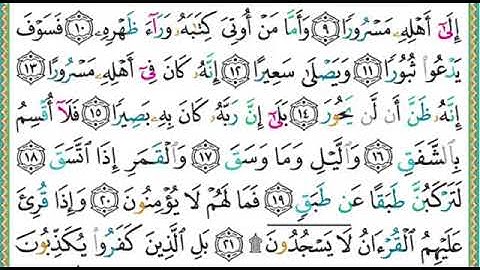 إِلَىٰٓ أَهْلِهِۦ مَسْرُورًا ٩ وَأَمَّا مَنْ أُوتِىَ كِتَٰبَهُۥ وَرَآءَ ظَهْرِهِۦ ١٠ فَسَوْفَ
يَدْعُوا۟ ثُبُورًا ١١ وَيَصْلَىٰ سَعِيرًا ١٢ إِنَّهُۥ كَانَ فِىٓ أَهْلِهِۦ مَسْرُورًا ١٣
إِنَّهُۥ ظَنَّ أَن لَّن يَحُورَ ١٤ بَلَىٰٓ إِنَّ رَبَّهُۥ كَانَ بِهِۦ بَصِيرًا ١٥ فَلَآ أُقْسِمُ
بِٱلشَّفَقِ ١٦ وَٱلَّيْلِ وَمَا وَسَقَ ١٧ وَٱلْقَمَرِ إِذَا ٱتَّسَقَ ١٨
لَتَرْكَبُنَّ طَبَقًا عَن طَبَقٍ ١٩ فَمَا لَهُمْ لَا يُؤْمِنُونَ ٢٠ وَإِذَا قُرِئَ
عَلَيْهِمُ ٱلْقُرْءَانُ لَا يَسْجُدُونَ ۩ ٢١ بَلِ ٱلَّذِينَ كَفَرُوا۟ يُكَذِّبُونَ